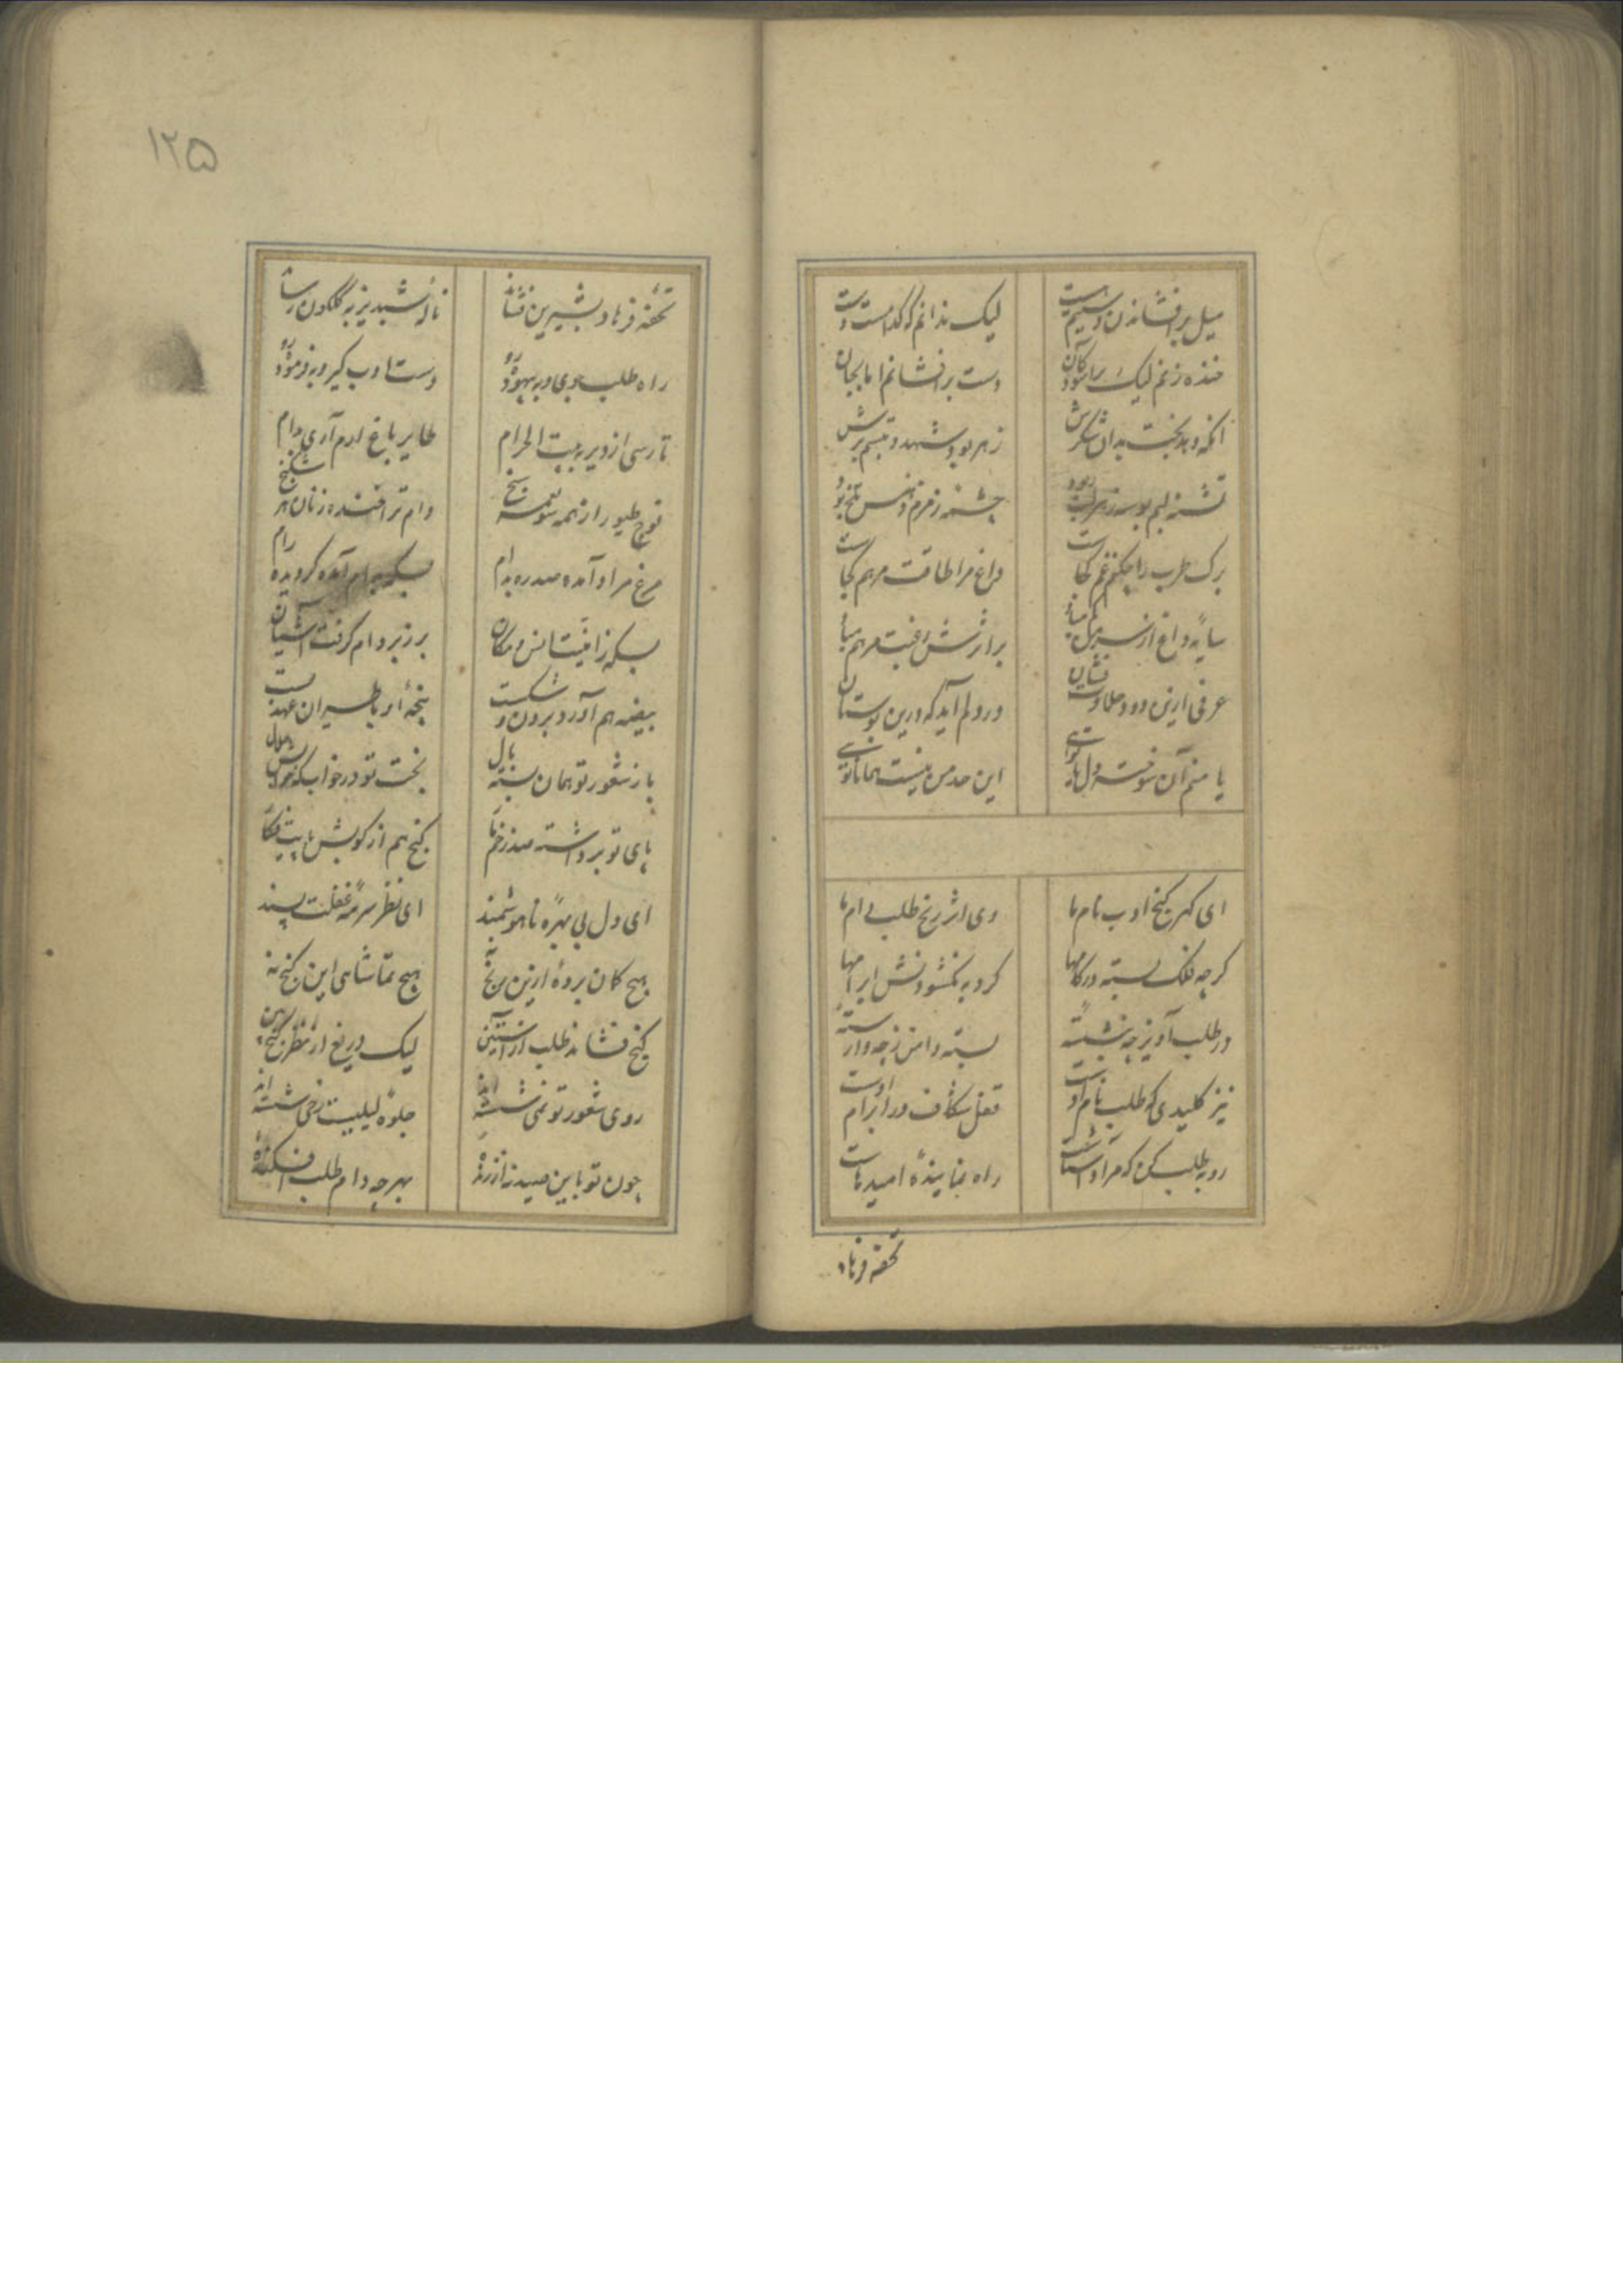 میل بر افشاندن دستیم هست لیک ندانم که کدامست دست
خنده زنم لیک بر اسودکان دست بر افشانم اما بجان
انکه دهد بخت بدان شکرش زهر بود شهد تبسم برش
تشنه لبم بوسه زهراب چشمه زمزم نفس تلخ بود
برک طرب را چکنم غم کجاست داغ مرا طاقت مرهم کجاست
سایه داغ از سر دل کم مباد بر اثرش رغبت مرهم مباد
عرفی ازین درد حلاوت فشان در دلم آید که درین بوستان
یا منم آن سوخته دل یا توئی این حد من نیست همانا توئی
ای کهر کنج ادب نام ما وی اثر رنج طلب دام ما
کرچه فلک بسته در کامها کرد به نکشودنش ابرامها
در طلب آویز چه بنشسته بسته دامن ز چه وارسته
نیز کلیدی که طلب نام اوست قفل شکاف در ابرام اوست
رو بطلب کن که مراد آشناست راه نماینده امید ماست
تحفه فرهاد
۱۲۵
تحفه فرهاد بشیرین فشاند ناله شبدیز به کلکون رساند
راه طلب جوی و به بیهوده رو دست ادب کیر و به فرموده رو
تا رسی از دیر به بیت الحرام طایر باغ ارم آری بدام
فوج طیور از همه سو نغمه سنج دام ترا خنده زنان هر شکنج
مرغ مراد آمده صد ره بدام بسکه بدام آمده کردیده رام
بسکه ز امنیت انس و مکان بر زبر دام کرفت آشیان
بیضه هم آورد برون و شکست بچه او با طیران عهد بست
باز شعور تو همان بسته بال بخت تو در خوابکه
پای تو برداشته صد زخم کنج هم از کوشش پایت
ای دل بی بهره ناهوشمند ای نظر سرمه غفلت پسند
هیچ کمان برده ازین رنج نه هیچ تماشای این کنج نه
کنج فشاند طلب از آستین لیک دریغ از نظر کنج بین
روی شعور تو نمی شسته اند جلوه لیلیت رخی شسته اند
چون تو باین صید نه ارزنده بهر چه دام طلب افکنده